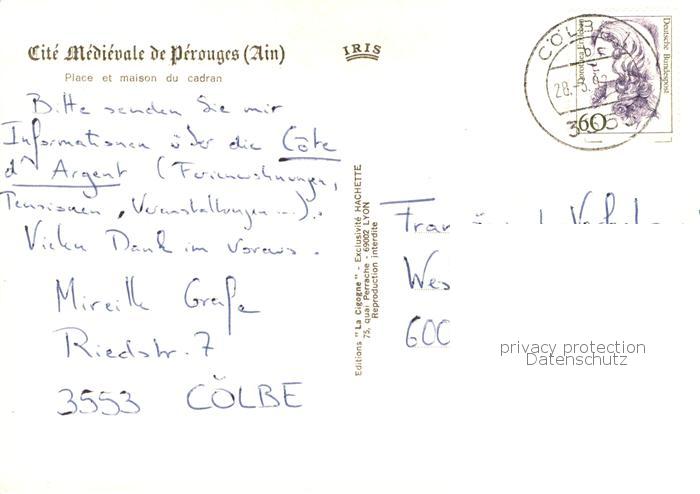 Cité Médiévale de Pérouges (Ain)
Place et maison du cadran
IRIS
Bitte senden Sie mir
Informationen über die Côte
d'Argent (Ferienwohnungen,
Pensionen, Veranstaltungen ...).
Vielen Dank im voraus.
Mireille
Riedstr. 7
3553 CÖLBE
Editions "La Cigogne" - Exclusivité HACHETTE
75, quai Perrache - 69002 LYON
Reproduction interdite
CÖLBE
28.-3.
Deutsche Bundespost
60
Wes
600
privacy protection
Datenschutz